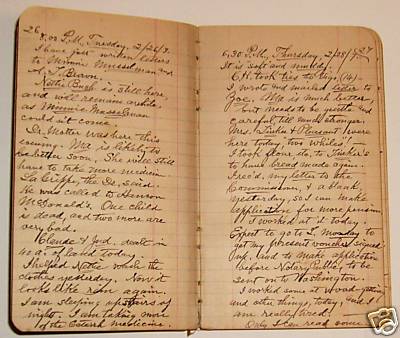 26
8.00 P.M., Tuesday, 2/26/7.
I have just written letters
to Minnie Musselman and
A. J. Brown.
Nettie Bush is still here
and will remain awhile.
as Minnie Musselman
could n't come.
Dr. Mester was here this
evening. Ma is likely to
be better soon. She will still
have to take more medicine
La Grippe, the Dr. said.
He was called to Henson
McDonald's. One child
is dead, and two more are
very bad.
Claude & Jord, dealt in
40 a. of land today.
I helped Nettie wash the
clothes yesterday. Now it
looks like rain again.
I am sleeping upstairs of
night. I am taking more
of the medicine.
27
6.30 P.M., Thursday, 2/28/7.
It is soft and muddy.
C.H. took ties to (14)
I wrote and marked letter to
Zoe. Ma is much better,
but needs to be quiet and
careful, till much stronger.
Mrs. Tinker & Pleasant were
here today, two whiles! -
I took flour, etc, to Tinker's
to have bread made again.
I rec'd, my letter to the
Commissioner, & a blank,
yesterday, so I can make
application for more pension
I worked at it today.
Expect to go to L, Monday to
get my present voucher signed
up, and to make application
before Notary Public, to be
sent on to Washington.
I worked some at wood-getting
and other things, today, and I
am really tired!
Only I can read some